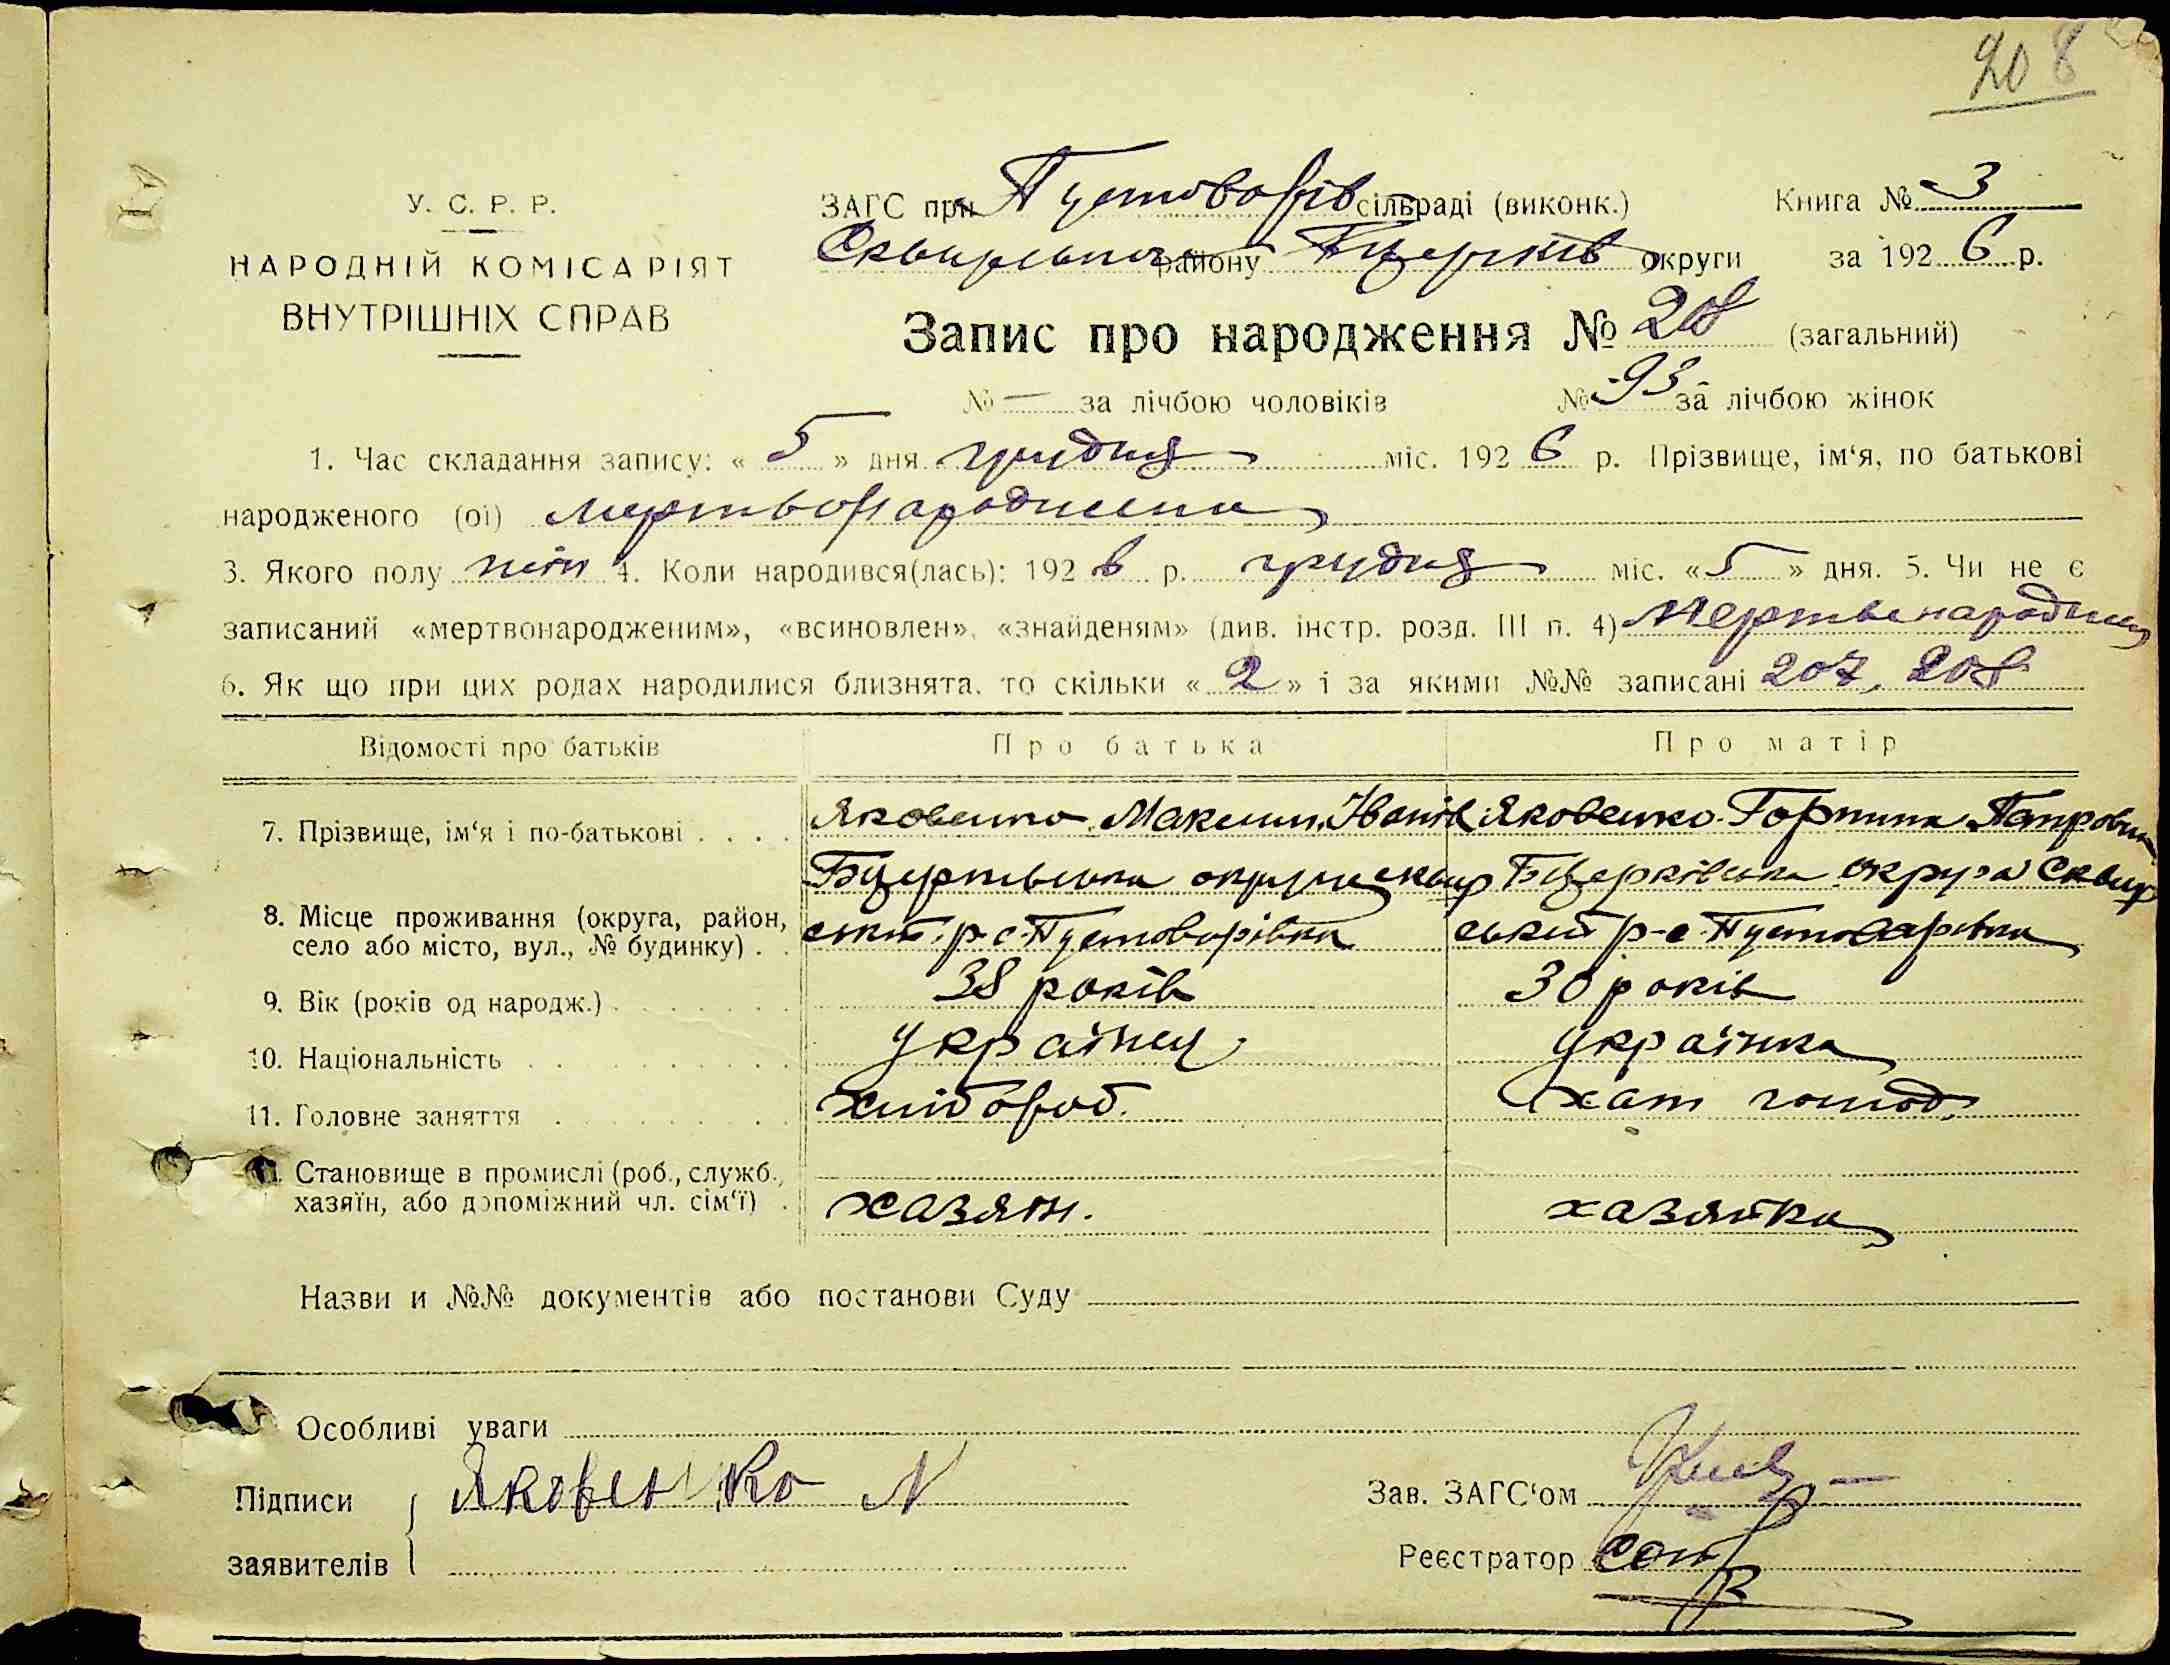 208
У. С. Р. Р.
НАРОДНІЙ КОМІСАРІЯТ
ВНУТРІШНІХ СПРАВ
ЗАГС при Пустоворів сільраді (виконк.) Книга № 3
Сквирського району Бцерків округи за 1926 р.
Запис про народження № 208 (загальний)
№ — за лічбою чоловіків № 93 за лічбою жінок
1. Час складання запису: « 5 » дня грудня міс. 1926 р. Прізвище, ім‘я, по батькові
народженого (ої) мертвонароднена
3. Якого полу жін 4. Коли народився(лась): 1926 р. грудня міс. « 5 » дня. 5. Чи не є
записаний «мертвонародженим», «всиновлен», «знайденям» (див. інстр. розд. III п. 4)
6. Як що при цих родах народилися близнята, то скільки « 2 » і за якими №№ записані 207, 208
Відомості про батьків Про батька Про матір
7. Прізвище, ім‘я і по-батькові . . . . Яковенко Максим Іванів Яковенко Горпина
Бцерківська округа Сквир Бцерківська округа Сквир
8. Місце проживання (округа, район, село або місто, вул., № будинку) . . ський р-с Пустоворівка
9. Вік (років од народж.) . . . . . . . 38 років 30 років
10. Національність . . . . . . . . українец українка
11. Головне заняття . . . . . . . . хлібороб. хат господ.
Становище в промислі (роб., служб.,
хазяїн, або допоміжний чл. сім‘ї) . хазяїн. хазяйка
Назви и №№ документів або постанови Суду
Особливі уваги
Підписи Яковенко М Зав. ЗАГС‘ом
заявителів Реєстратор